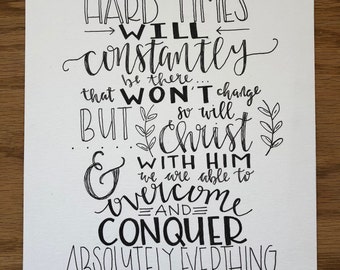 HARD TIMES
WILL
constantly
be there...
that WON'T change
BUT so will
Christ
& WITH HIM
we are able to
overcome
AND
CONQUER
ABSOLUTELY EVERYTHING